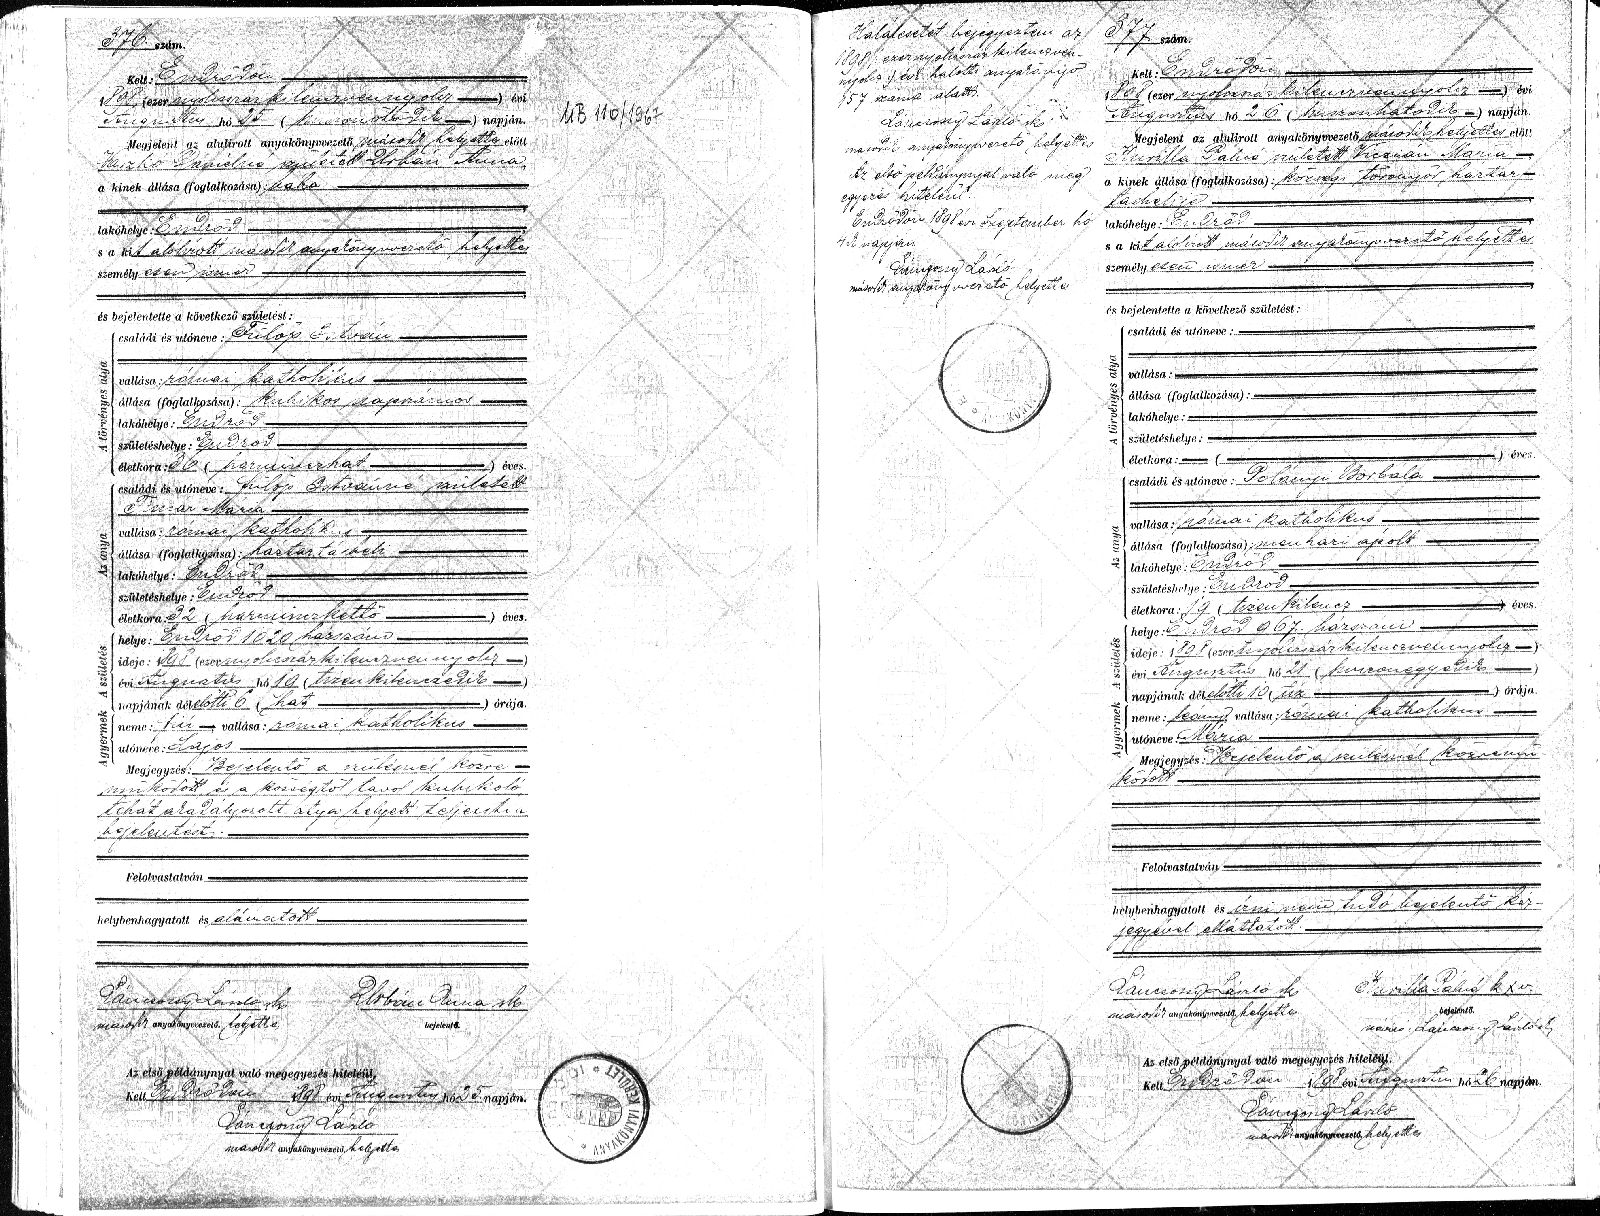 376. szám.
Kelt: Endrődön
1898 (ezernyolcszázkilenczvennyolcz) évi
Augusztus hó 25 (huszonötödik) napján.
Megjelent az alulirott anyakönyvvezető második helyettes előtt
született Urbán Anna
a kinek állása (foglalkozása): bába
lakóhelye: Endrőd
s a kit alólirott második anyakönyvvezető helyettes
személyesen ismer
és bejelentette a következő születést:
A törvényes atyja
családi és utóneve: Fülöp István
vallása: római katholikus
állása (foglalkozása): kubikos napszámos
lakóhelye: Endrőd
születéshelye: Endrőd
életkora: 36 (harminczhat) éves.
Az anya
családi és utóneve: Fülöp Istvánné született
Timár Mária
vallása: római katholikus
állása (foglalkozása): háztartásbeli
lakóhelye: Endrőd
születéshelye: Endrőd
életkora: 32 (harminczkettő) éves.
A születés
helye: Endrőd 1020 házszám
ideje: 1898 (ezernyolcszázkilenczvennyolcz)
évi Augusztus hó 19 (tizenkilenczedik)
napjának délelőtti 6 (hat) órája.
A gyermek
neme: fiú, vallása: római katholikus
utóneve: Lajos
Megjegyzés: Bejelentő a szülésnél közre
működött és a községtől távol kubikoló
tehát akadályozott atya helyett teljesíti a
bejelentést.
Felolvastatván
helybenhagyatott és aláiratott
Lánczony László sk
második anyakönyvvezető helyettes
Urbán Anna sk
bejelentő.
Az első példánynyal való megegyezés hiteléül,
Kelt Endrődön 1898 évi Augusztus hó 25 napján.
Lánczony László
második anyakönyvvezető helyettes
MB 110/1967
KERÜLET * ANYAKÖNYVI
Halálesetét bejegyeztem az
1898 ezernyolcszázkilenczven-
nyolcz évi halotti anyakönyv
157 száma alatt.
Lánczony László sk
második anyakönyvvezető helyettes
Az első példánynyal való meg
egyezés hiteléül.
Endrődön 1898 évi Szeptember hó
4ik napján
Lánczony László
második anyakönyvvezető helyettes
377 szám.
Kelt: Endrődön
1898 (ezernyolcszázkilenczvennyolcz) évi
Augusztus hó 26 (huszonhatodik) napján.
Megjelent az alulirott anyakönyvvezető második helyettes előtt
Kurilla Pálné született Viczián Mária
a kinek állása (foglalkozása): községi toronyőr, háztar-
tásbelije
lakóhelye: Endrőd
s a kit alólirott második anyakönyvvezető helyettes
személyesen ismer
és bejelentette a következő születést:
A törvényes atyja
családi és utóneve:
vallása:
állása (foglalkozása):
lakóhelye:
születéshelye:
életkora: ( ) éves.
Az anya
családi és utóneve: Polányi Borbála
vallása: római katholikus
állása (foglalkozása): menházi ápolt
lakóhelye: Endrőd
születéshelye: Endrőd
életkora: 19 (tizenkilencz) éves.
A születés
helye: Endrőd 967. házszám
ideje: 1898 (ezernyolcszázkilenczvennyolcz)
évi Augusztus hó 21 (huszonegyedik)
napjának délelőtti 10 (tíz) órája.
A gyermek
neme: leány, vallása: római katholikus
utóneve: Mária
Megjegyzés: Bejelentő a szülésnél közremű
ködött
Felolvastatván
helybenhagyatott és írni nem tudó bejelentő kéz-
jegyével elláttatott.
Lánczony László sk
második anyakönyvvezető, helyettes
Kurilla Pálné k x v.
bejelentő.
Lánczony László sk
Az első példánynyal való megegyezés hiteléül,
Kelt Endrődön 1898 évi Augusztus hó 26 napján.
Lánczony László
második anyakönyvvezető, helyettes